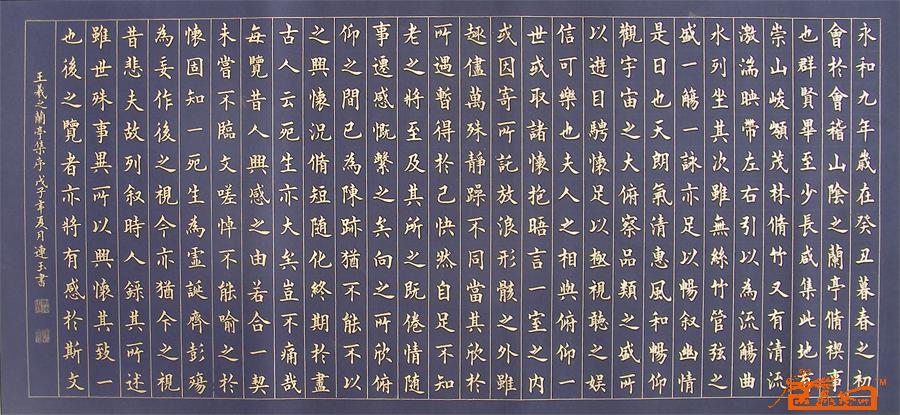 永和九年歲在癸丑暮春之初
會於會稽山陰之蘭亭脩禊事
也群賢畢至少長咸集此地有
崇山峻嶺茂林脩竹又有清流
激湍映帶左右引以為流觴曲
水列坐其次雖無絲竹管弦之
盛一觴一詠亦足以暢叙幽情
是日也天朗氣清惠風和暢仰
觀宇宙之大俯察品類之盛所
以遊目騁懷足以極視聽之娛
信可樂也夫人之相與俯仰一
世或取諸懷抱晤言一室之內
或因寄所託放浪形骸之外雖
趣儘萬殊靜躁不同當其欣於
所遇暫得於己快然自足不知
老之將至及其所之既倦情随
事遷感慨繫之矣向之所欣俯
仰之間已為陳跡猶不能不以
之興懷況脩短随化終期於盡
古人云死生亦大矣豈不痛哉
每覽昔人興感之由若合一契
未嘗不臨文嗟悼不能喻之於
懷固知一死生為虛誕齊彭殤
為妄作後之視今亦猶今之視
昔悲夫故列叙時人錄其所述
雖世殊事異所以興懷其致一
也後之覽者亦將有感於斯文
王羲之蘭亭集序戊子年夏月連玉書